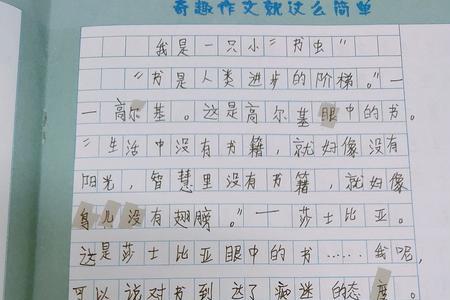 奇趣作文就这么简单
我是一只小“书虫”
“书是人类进步的阶梯。”一
一高尔基。这是高尔基眼中的书。
“生活中没有书籍，就好像没有
阳光，智慧里没有书籍，就好像
鸟儿没有翅膀。”一莎士比亚。
这是莎士比亚眼中的书……我呢，
可以说对书到达了痴迷的态度。